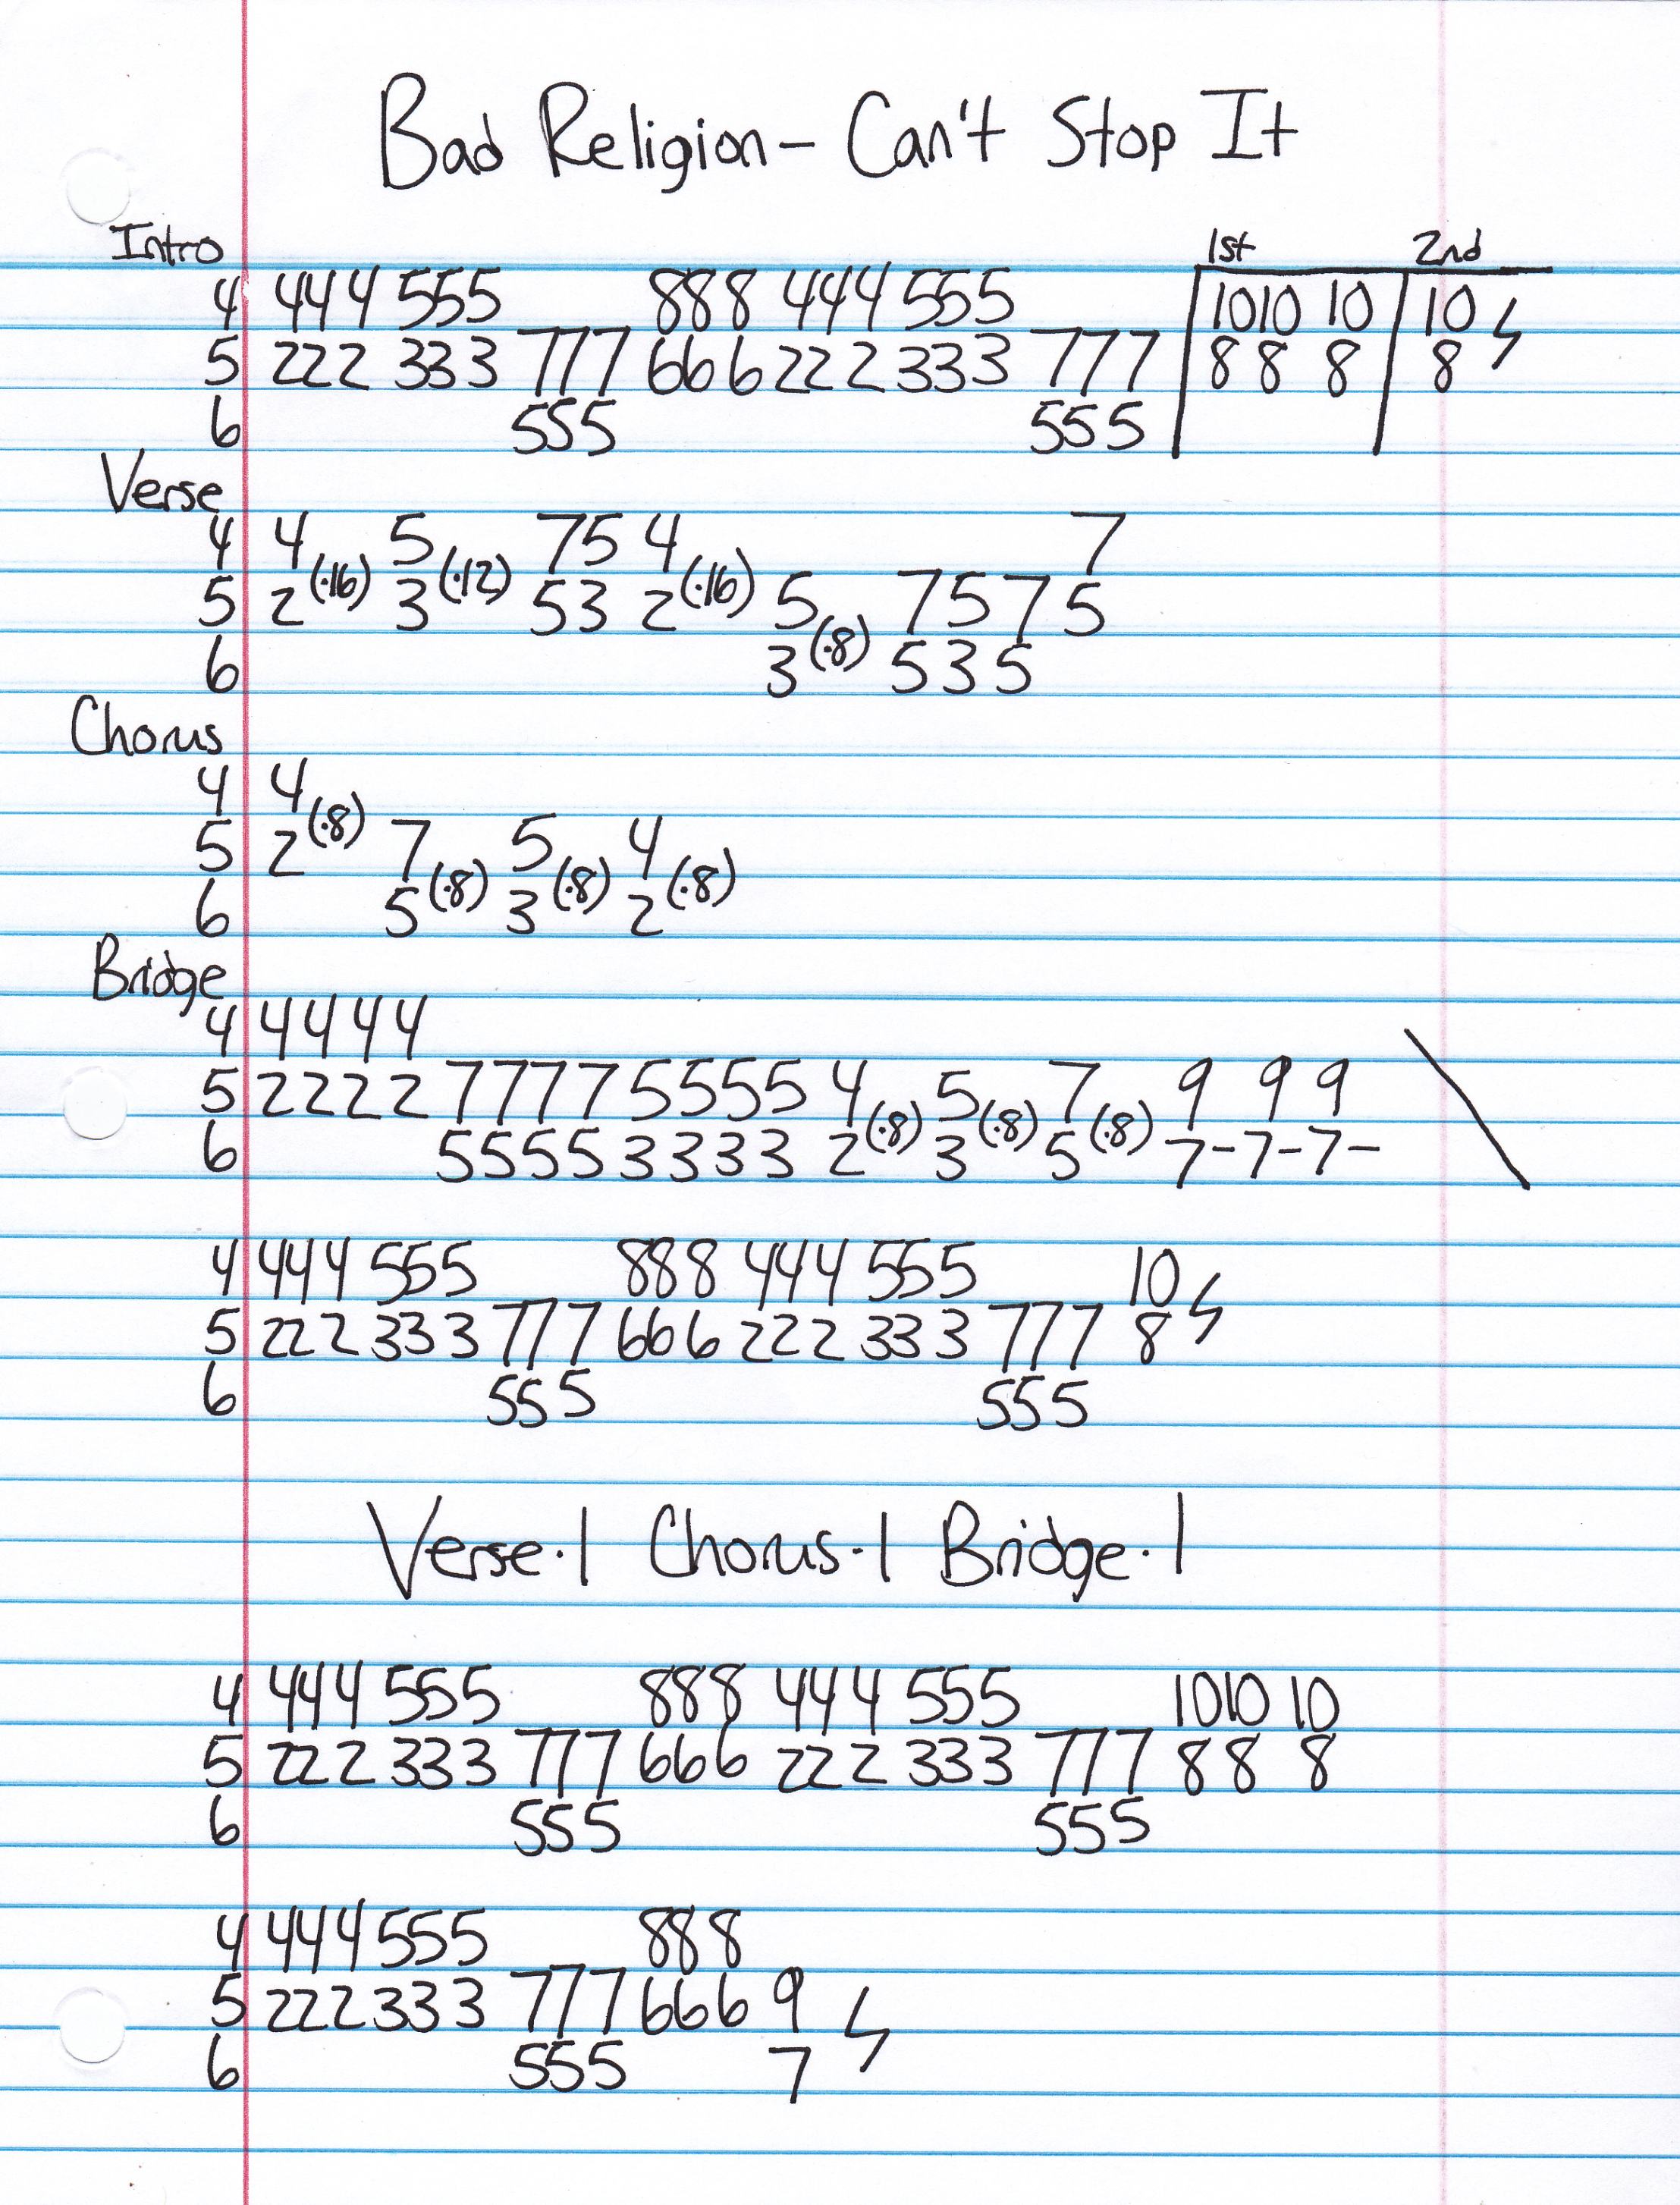 Bad Religion - Can't Stop It
Intro 1st 2nd
4 444 555 888 444 555 1010 10 10 ϟ
5 222 333 777 666 222 333 777 88 8 8
6 555 555
Verse
4 4 5 75 4 7
5 2 (·16) 3 (·12) 53 2 (·16) 5 7 5 7 5
6 3 (·8) 5 3 5
Chorus
4 4
5 2 (·8) 7 5 4
6 5 (·8) 3 (·8) 2 (·8)
Bridge
4 4444
5 2222 7777 5555 4 5 7 9 9 9
6 5555 3333 2 (·8) 3 (·8) 5 (·8) 7-7-7-
4 444 555 888 444 555 10 ϟ
5 222 333 777 666 222 333 777 8
6 555 555
Verse·1 Chorus·1 Bridge·1
4 444 555 888 444 555 1010 10
5 222 333 777 666 222 333 777 88 8
6 555 555
4 444 555 888
5 222 333 777 666 9 ϟ
6 555 7